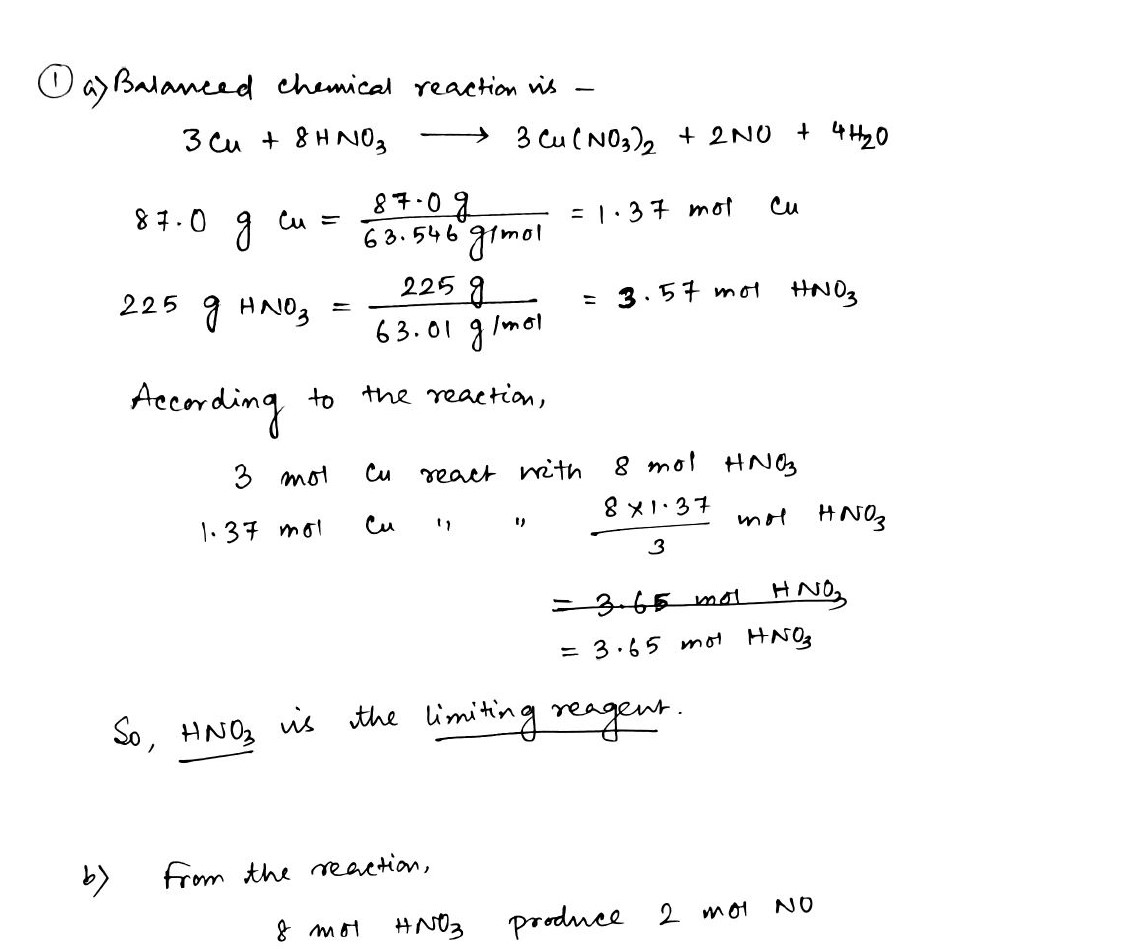 ① a) Balanced chemical reaction is –
3 Cu + 8 HNO₃ ⟶ 3 Cu(NO₃)₂ + 2NO + 4H₂O
87.0 g Cu = 87.0 g / 63.546 g/mol = 1.37 mol Cu
225 g HNO₃ = 225 g / 63.01 g/mol = 3.57 mol HNO₃
According to the reaction,
3 mol Cu react with 8 mol HNO₃
1.37 mol Cu " " 8 × 1.37 / 3 mol HNO₃
= 3.65 mol HNO₃
= 3.65 mol HNO₃
So, HNO₃ is the limiting reagent.
b) From the reaction,
8 mol HNO₃ produce 2 mol NO